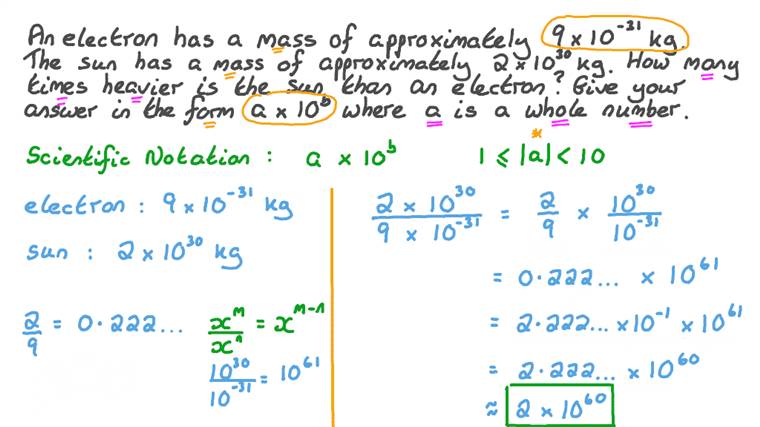 An electron has a mass of approximately 9 × 10⁻³¹ kg.
The sun has a mass of approximately 2 × 10³⁰ kg. How many
times heavier is the sun than an electron? Give your
answer in the form a × 10ᵇ where a is a whole number.
Scientific Notation : a × 10ᵇ 1 ⩽ |a| < 10
*
electron : 9 × 10⁻³¹ kg
sun : 2 × 10³⁰ kg
2/9 = 0.222...
xᵐ/xⁿ = xᵐ⁻ⁿ
10³⁰/10⁻³¹ = 10⁶¹
2 × 10³⁰/9 × 10⁻³¹ = 2/9 × 10³⁰/10⁻³¹
= 0.222... × 10⁶¹
= 2.222... × 10⁻¹ × 10⁶¹
= 2.222... × 10⁶⁰
≈ 2 × 10⁶⁰